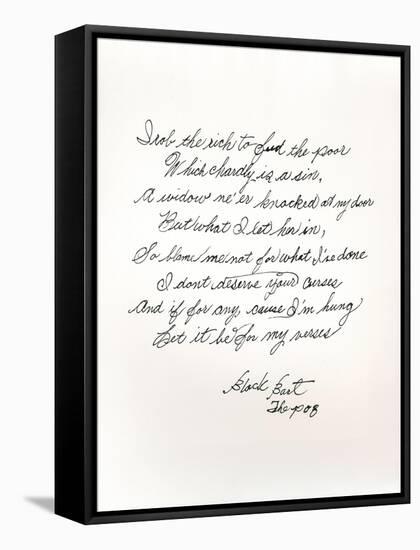 I rob the rich to feed the poor
Which hardly is a sin,
A widow ne'er knocked at my door
But what I let her in,
So blame me not for what I've done
I dont deserve your curses
And if for any cause I'm hung
Let it be for my verses
Black Bart
The po8